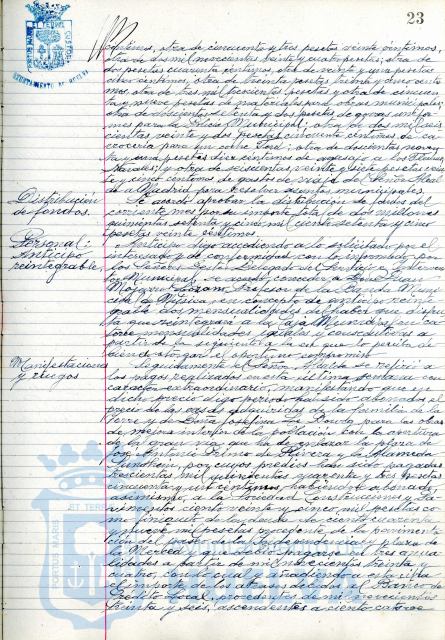 23
AYUNTAMIENTO DE HUELVA
céntimos, otra de cincuenta y tres pesetas veinte céntimos,
otra de dos mil novecientas veinte y cuatro pesetas; otra de
dos pesetas cuarenta céntimos, otra de veinte y una pesetas
ocho céntimos, otra de treinta pesetas treinta y cinco cénti
mos, otra de tres mil trescientas pesetas y otra de cincuen
ta y nueve pesetas de materiales para obras municipales;
otra de doscientas setenta y dos pesetas de gorras unifor-
mes para la Guardia Municipal; otra de dos mil seis
cientas veinte y dos pesetas cincuenta céntimos de ca
rrocería para un coche Ford; otra de doscientas noven
ta y una pesetas diez céntimos de agasajo a los Flechas
Navales; y otra de seiscientas veinte y siete pesetas vein
te y cinco céntimos de gastos de viaje del Señor Alcal
de a Madrid para resolver asuntos municipales.
Distribución
de fondos.
Se acordó aprobar la distribución de fondos del
corriente mes por su importe total de dos millones
quinientas setenta y cinco mil ciento setenta y cinco
pesetas veinte céntimos.
Personal:
Anticipo
reintegrable.
Anticipo digo accediendo a lo solicitado por el
interesado y de conformidad con lo informado por
los Señores Gestor Delegado del Servicio e Interven
tor Municipal, se acordó conceder a José
Lozano, Profesor de la Banda Munici
pal de Música, en concepto de anticipo reinte
grable, dos mensualidades del haber que disfru
ta que reintegrará a la Caja Municipal en ca
torce mensualidades iguales y consecutivas a
partir de la siguiente a la en que lo perciba de
biendo otorgar el oportuno compromiso.
Manifestaciones
y ruegos
Seguidamente el Señor Alcalde se refirió a
los pagos realizados hasta última semana con
carácter extraordinario, manifestando que en
dicho precio digo periodo han sido abonados el
precio de las casas adquiridas de la familia de la
Torre y de Doña Josefina de Soto para las obras
de mejora interior de la población con la apertura
de la gran vía que ha de enlazar la plaza de
José Antonio Primo de Rivera y la Alameda
Sundheim, por cuyos predios han sido pagadas
trescientas mil quinientas y tres pesetas
cincuenta y un céntimos, habiéndose abonado,
asimismo, a la Sociedad Construcciones y Pa
vimentos ciento veinte y cinco mil pesetas co
mo finiquito de la suma de ciento cuarenta
y nueve mil pesetas procedente de la pavimenta
ción del paseo de la Independencia y plaza de
la Merced y que debió pagarse en tres anua
lidades a partir de mil novecientos treinta y
cuatro, con lo cual y añadiendo a esta cifra
el importe de los atrasos debidos al Banco de
Crédito Local, procedentes de mil novecientos
treinta y seis, ascendentes a ciento catorce
PORTUS MARIS ET TERRAE